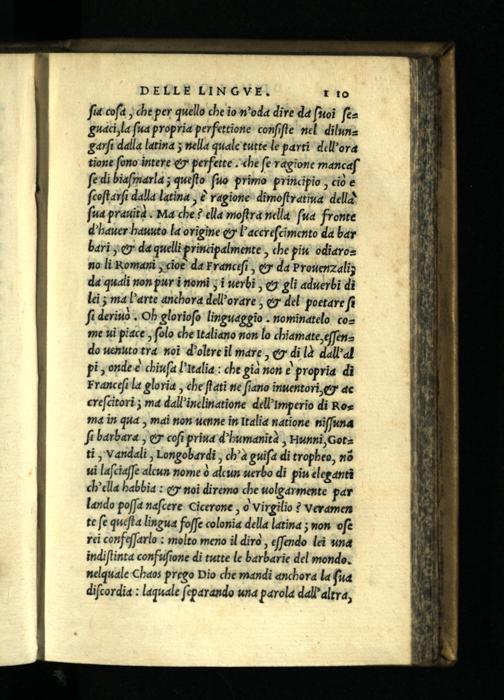 DELLE LINGVE. 110
sia cosa, che per quello che io n'oda dire da suoi se=
guaci, la sua propria perfettione consiste nel dilun=
garsi dalla latina; nella quale tutte le parti dell'ora
tione sono intere & perfette. che se ragione mancas
se di biasmarla; questo suo primo principio, cio è
scostarsi dalla latina, è ragione dimostratiua della
sua prauità. Ma che? ella mostra nella sua fronte
d'hauer hauuto la origine & l'accrescimento da bar
bari, & da quelli principalmente, che piu odiaro=
no li Romani, cioè da Francesi, & da Prouenzali;
da quali non pur i nomi; i uerbi, & gli aduerbi di
lei; ma l'arte anchora dell'orare, & del poetare si
si deriuò. Oh glorioso linguaggio. nominatelo co=
me ui piace, solo che Italiano non lo chiamate, essen=
do uenuto tra noi d'oltre il mare, & di là dall'al
pi, onde è chiusa l'Italia: che già non è propria di
Francesi la gloria, che stati ne siano inuentori, & ac
crescitori; ma dall'inclinatione dell'Imperio di Ro=
ma in qua, mai non uenne in Italia natione nissuna
si barbara, & cosi priua d'humanità, Hunni, Got=
ti, Vandali, Longobardi, ch'à guisa di tropheo, nō
ui lasciasse alcun nome ò alcun uerbo di piu eleganti
ch'ella habbia: & noi diremo che uolgarmente par
lando possa nascere Cicerone, ò Virgilio? Veramen
te se questa lingua fosse colonia della latina; non ose
rei confessarlo: molto meno il dirò, essendo lei una
indistinta confusione di tutte le barbarie del mondo.
nelquale Chaos prego Dio che mandi anchora la sua
discordia: laquale separando una parola dall'altra,